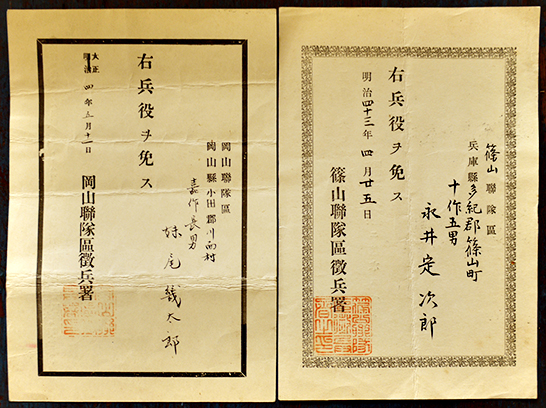 篠山聯隊區
兵庫縣多紀郡篠山町
十作五男
永井定次郎
右兵役ヲ免ス
明治四十三年四月廿五日
篠山聯隊區徴兵署
岡山聯隊區
岡山縣小田郡川面村
嘉作長男
妹尾幾太郎
右兵役ヲ免ス
大正四年五月十一日
岡山聯隊區徴兵署